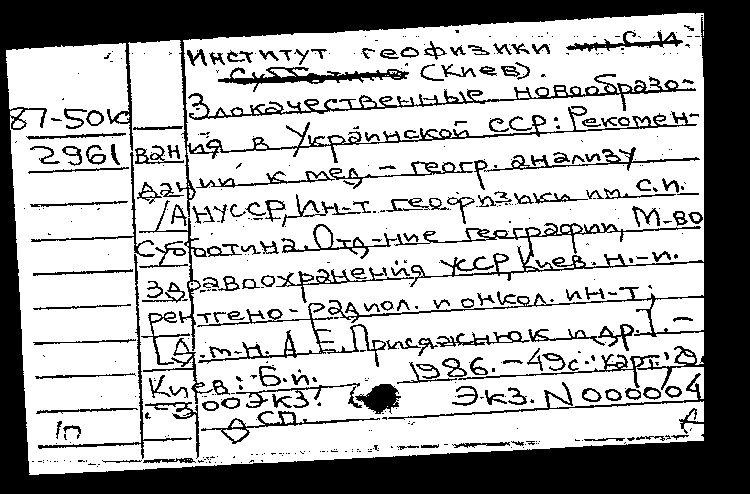 Институт геофизики им. С.И.
Субботина (Киев).
87-50к
Злокачественные новообразо-
2961
вания в Украинской ССР: Рекомен-
даций к мед.-геогр. анализу
/АНУССР, Ин-т геофизики им. С.И.
Субботина. Отд-ние географии, М-во
здравоохранения УССР, Киев. н.-и.
рентгено-радиол. и онкол. ин-т;
[Д.м.н. А.Е. Присяжнюк и др.]. -
Киев: Б.и. 1986. - 49 с.: карт.;
300 экз. Экз. N 000004
ДСП.
1п
А